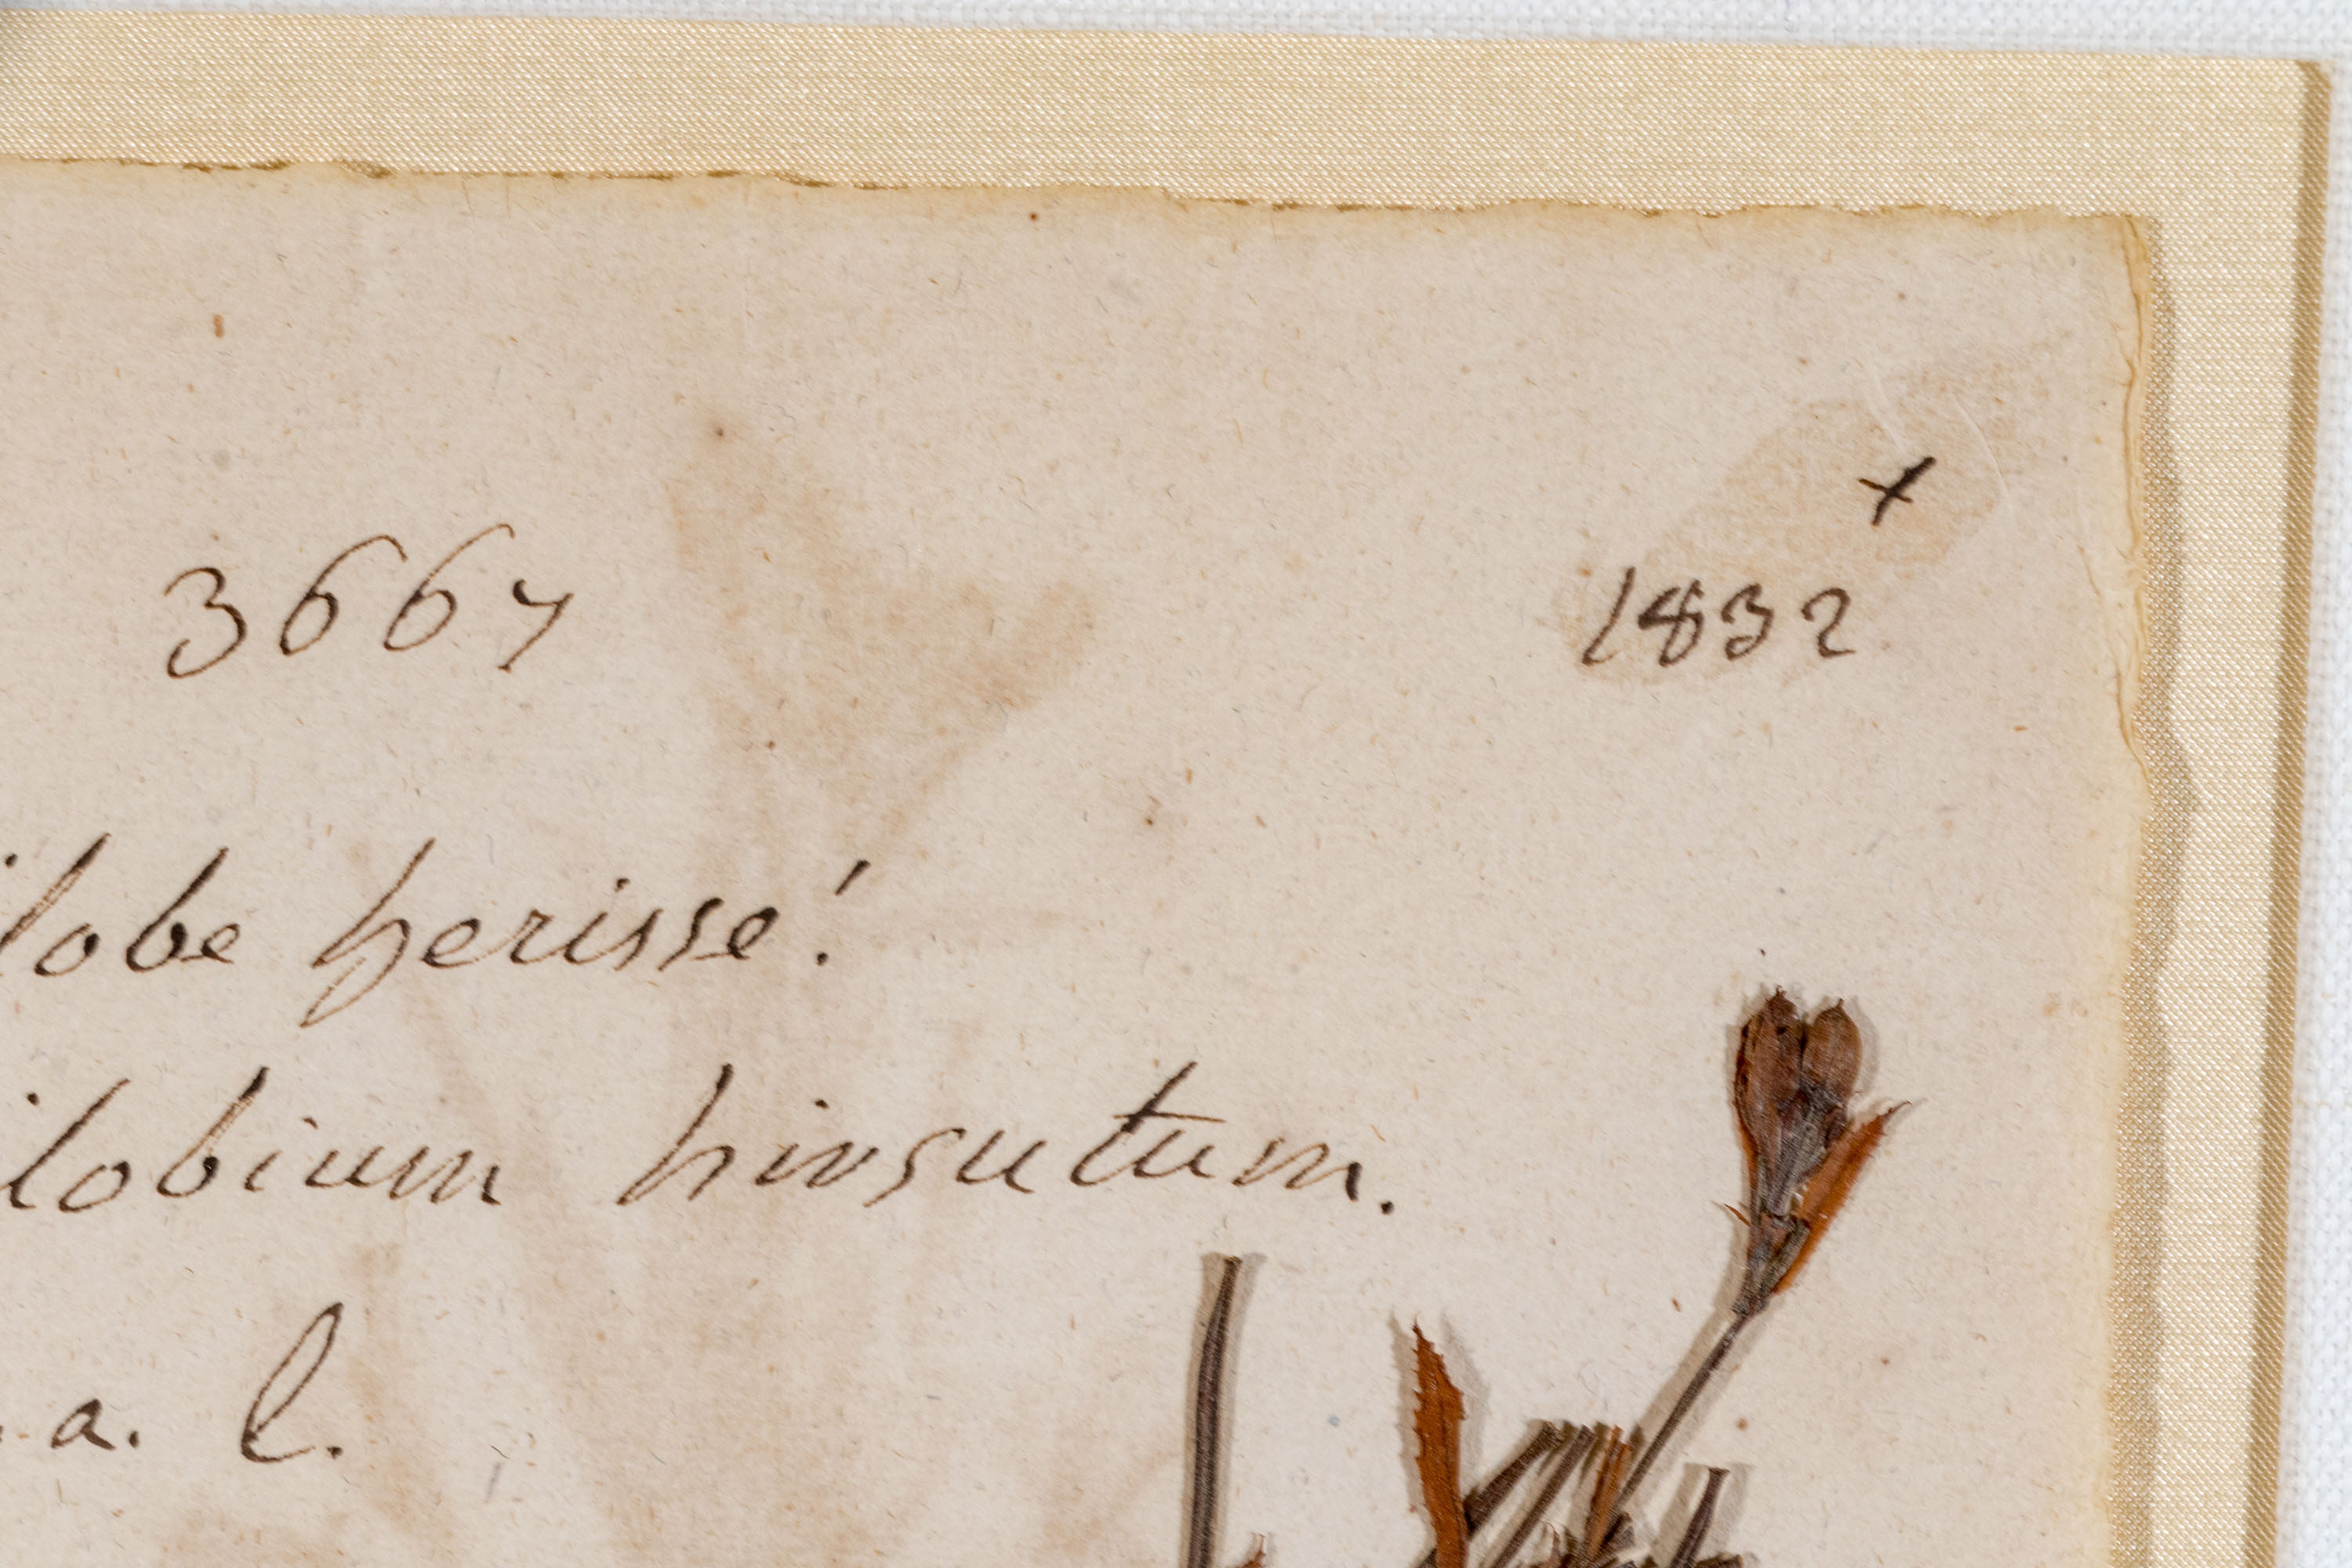 3667 1832
ilobe herissé!
ilobium hirsutum.
. a. l.